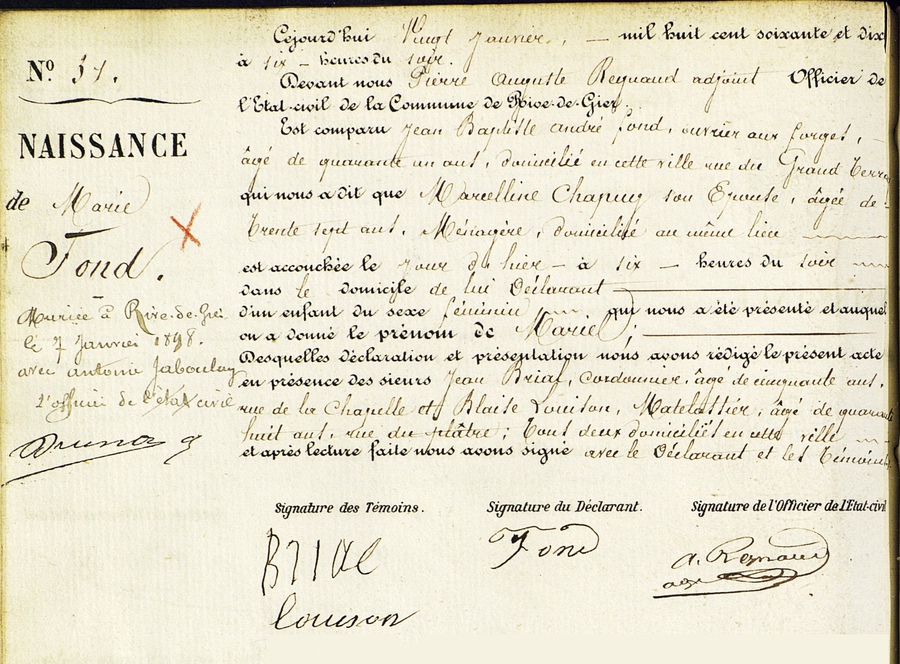 Nº 51.
NAISSANCE
de Marie
Fond.
Mariée à Rive-de-Gier
le 7 Janvier 1898.
avec antoine Jaboulay
l'officier de l'état civil
Cejourd'hui Vingt Janvier, — mil huit cent soixante et dix
à six — heures du soir.
Devant nous Pierre Auguste Reynaud adjoint Officier de
l'Etat-civil de la Commune de Rive-de-Gier.
Est comparu Jean Baptiste andré fond, ouvrier aux forges, —
âgé de quarante un ans, domicilié en cette ville rue du Grand
qui nous a dit que Marcelline Chapuy son Epouse, âgée de
Trente sept ans, Ménagère, domiciliée au même lieu
est accouchée le jour d'hier — à six — heures du soir
dans le domicile de lui Déclarant
d'un enfant du sexe féminin qui nous a été présenté et auquel
on a donné le prénom de Marie;
Desquelles déclaration et présentation nous avons rédigé le présent acte
en présence des sieurs Jean Briat, cordonnier, âgé de cinquante ans,
rue de la Chapelle et Blaise Louison, Matelassier, âgé de quarante
huit ans, rue du plâtre; tous deux domiciliés en cette ville
et après lecture faite nous avons signé avec le Déclarant et les témoins
Signature des Témoins. Signature du Déclarant. Signature de l'Officier de l'Etat-civil
Fond
A. Reynaud
Louison